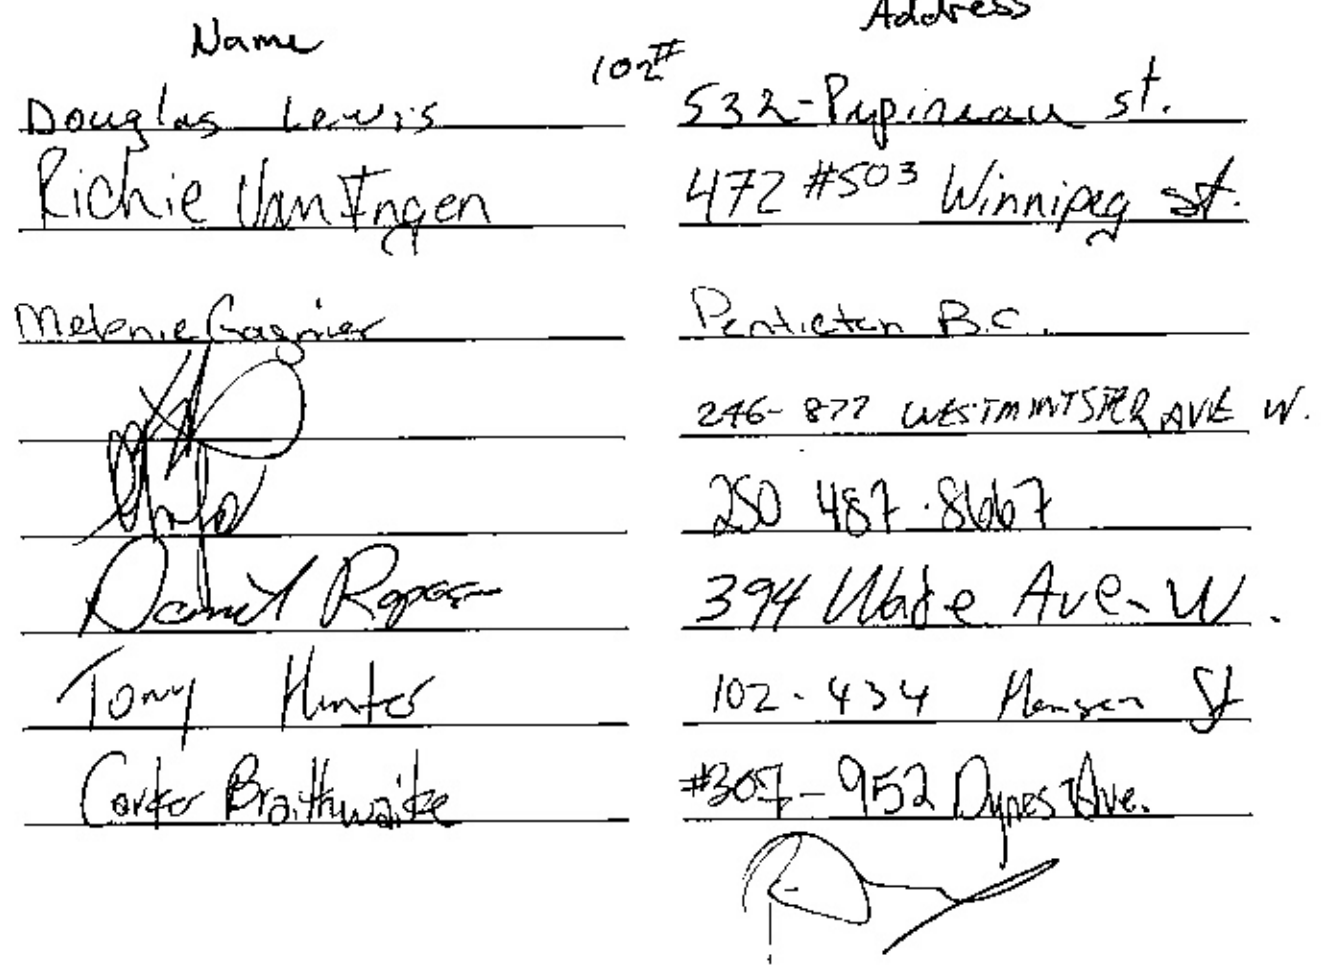 Name Address
Douglas Lewis 102# 532-Papineau st.
Richie Van Ingen 472 #503 Winnipeg st.
Melenie Gagnier Penticton B.C.
246- 877 WESTMINTSTER AVE W.
250 487.8667
Daniel 394 Wade Ave. W.
Tony Hunter 102-434 Hansen St
Carter Braithwaite #307-952 Dynes Ave.